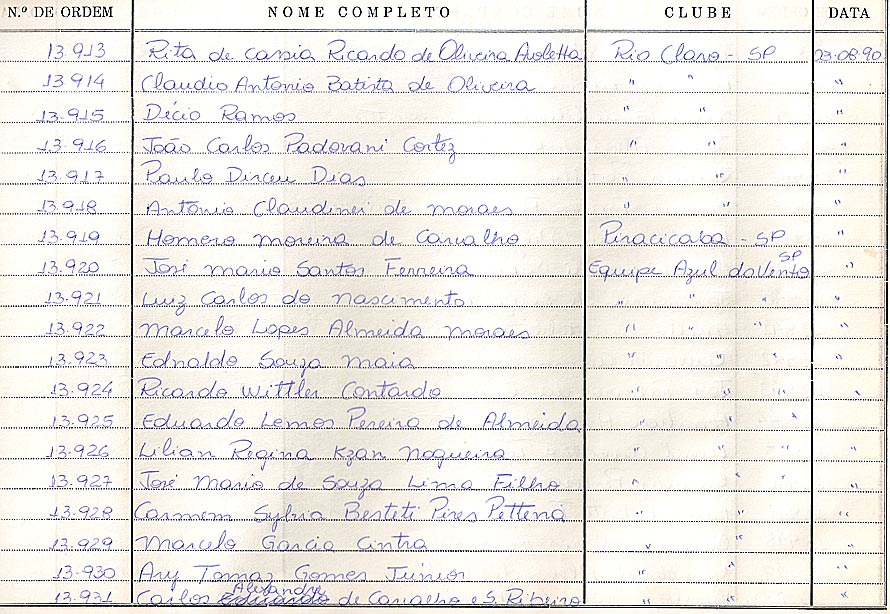 N.º DE ORDEM NOME COMPLETO CLUBE DATA
13.913 Rita de Cassia Ricardo de Oliveira Auletta Rio Claro - SP 23.08.90
13.914 Claudio Antonio Batista de Oliveira " " "
13.915 Décio Ramos " " "
13.916 João Carlos Padovani Cortez " " "
13.917 Paulo Dirceu Dias " " "
13.918 Antonio Claudinei de Moraes " " "
13.919 Homero Moreira de Carvalho Piracicaba - SP "
13.920 José Mario Santos Ferreira Equipe Azul do Vento SP "
13.921 Luiz Carlos do Nascimento " " " "
13.922 Marcelo Lopes Almeida Moraes " " " "
13.923 Ednaldo Souza Maia " " " "
13.924 Ricardo Wittler Contardo " " " "
13.925 Eduardo Lemos Pereira de Almeida " " " "
13.926 Lilian Regina Kzan Nogueira " " " "
13.927 José Mario de Souza Lima Filho " " "
13.928 Carmem Sylvia Besteti Pires Pettena " " "
13.929 Marcelo Garcia Cintra " " "
13.930 Ary Tomaz Gomes Júnior " " "
13.931 Carlos Alexandre de Carvalho e S. Ribeiro " " "